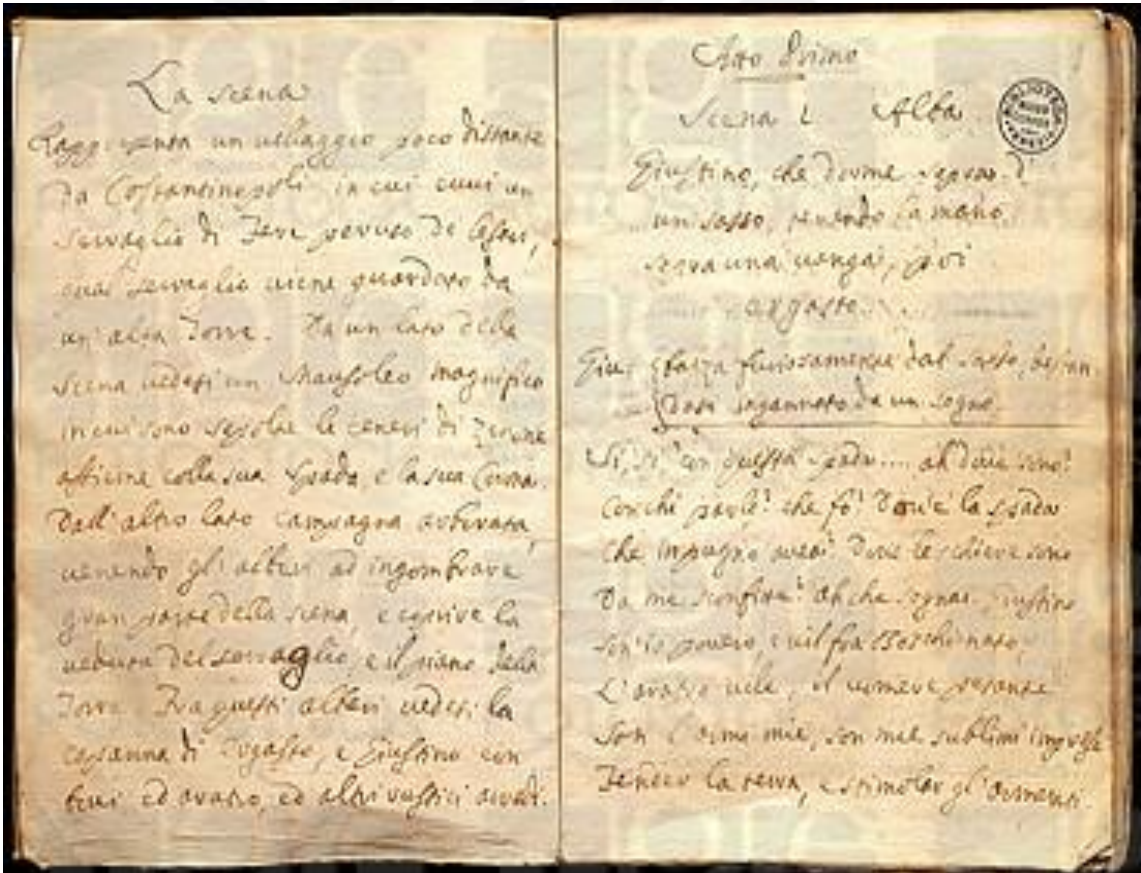 La scena
Rappresenta un villaggio poco distante
da Costantinopoli in cui evvi un
serraglio di Fere
qual serraglio viene guardato da
un' alta Torre. Da un lato della
scena vedesi un Mausoleo magnifico
in cui sono le ceneri di Zenone
assieme colla sua spada, e la sua Corona.
Dall' altro lato campagna
venendo gl' alberi ad ingombrare
gran parte della scena, e coprire la
veduta del serraglio, e il piano della
Torre. Fra questi alberi vedesi la
capanna di Ergasto, e Giustino con
ed aratro, ed altri rustici
Atto Primo
Scena 1 Alba
Giustino, che dorme sopra d'
un sasso, tenendo la mano
sopra una vanga, poi
Ergasto.
Giu: sbalza furiosamente dal sasso,
ingannato da un sogno.
Sì, sì, con questa spada.... ah dove sono?
Con chi parlo? che fo? Dov'è la spada
che impugno avea? Dove le schiere sono
Da me sconfitte? Ah che sognai. Giustino
son' io povero, e vil fra Boschi nato,
L'aratro vile, il vomere pesante
Son l'armi mie, son mie sublimi imprese
Fender la terra, e stimolar gl' armenti.
BIBLIOTECA
MUSEO
CORRER
VENEZIA